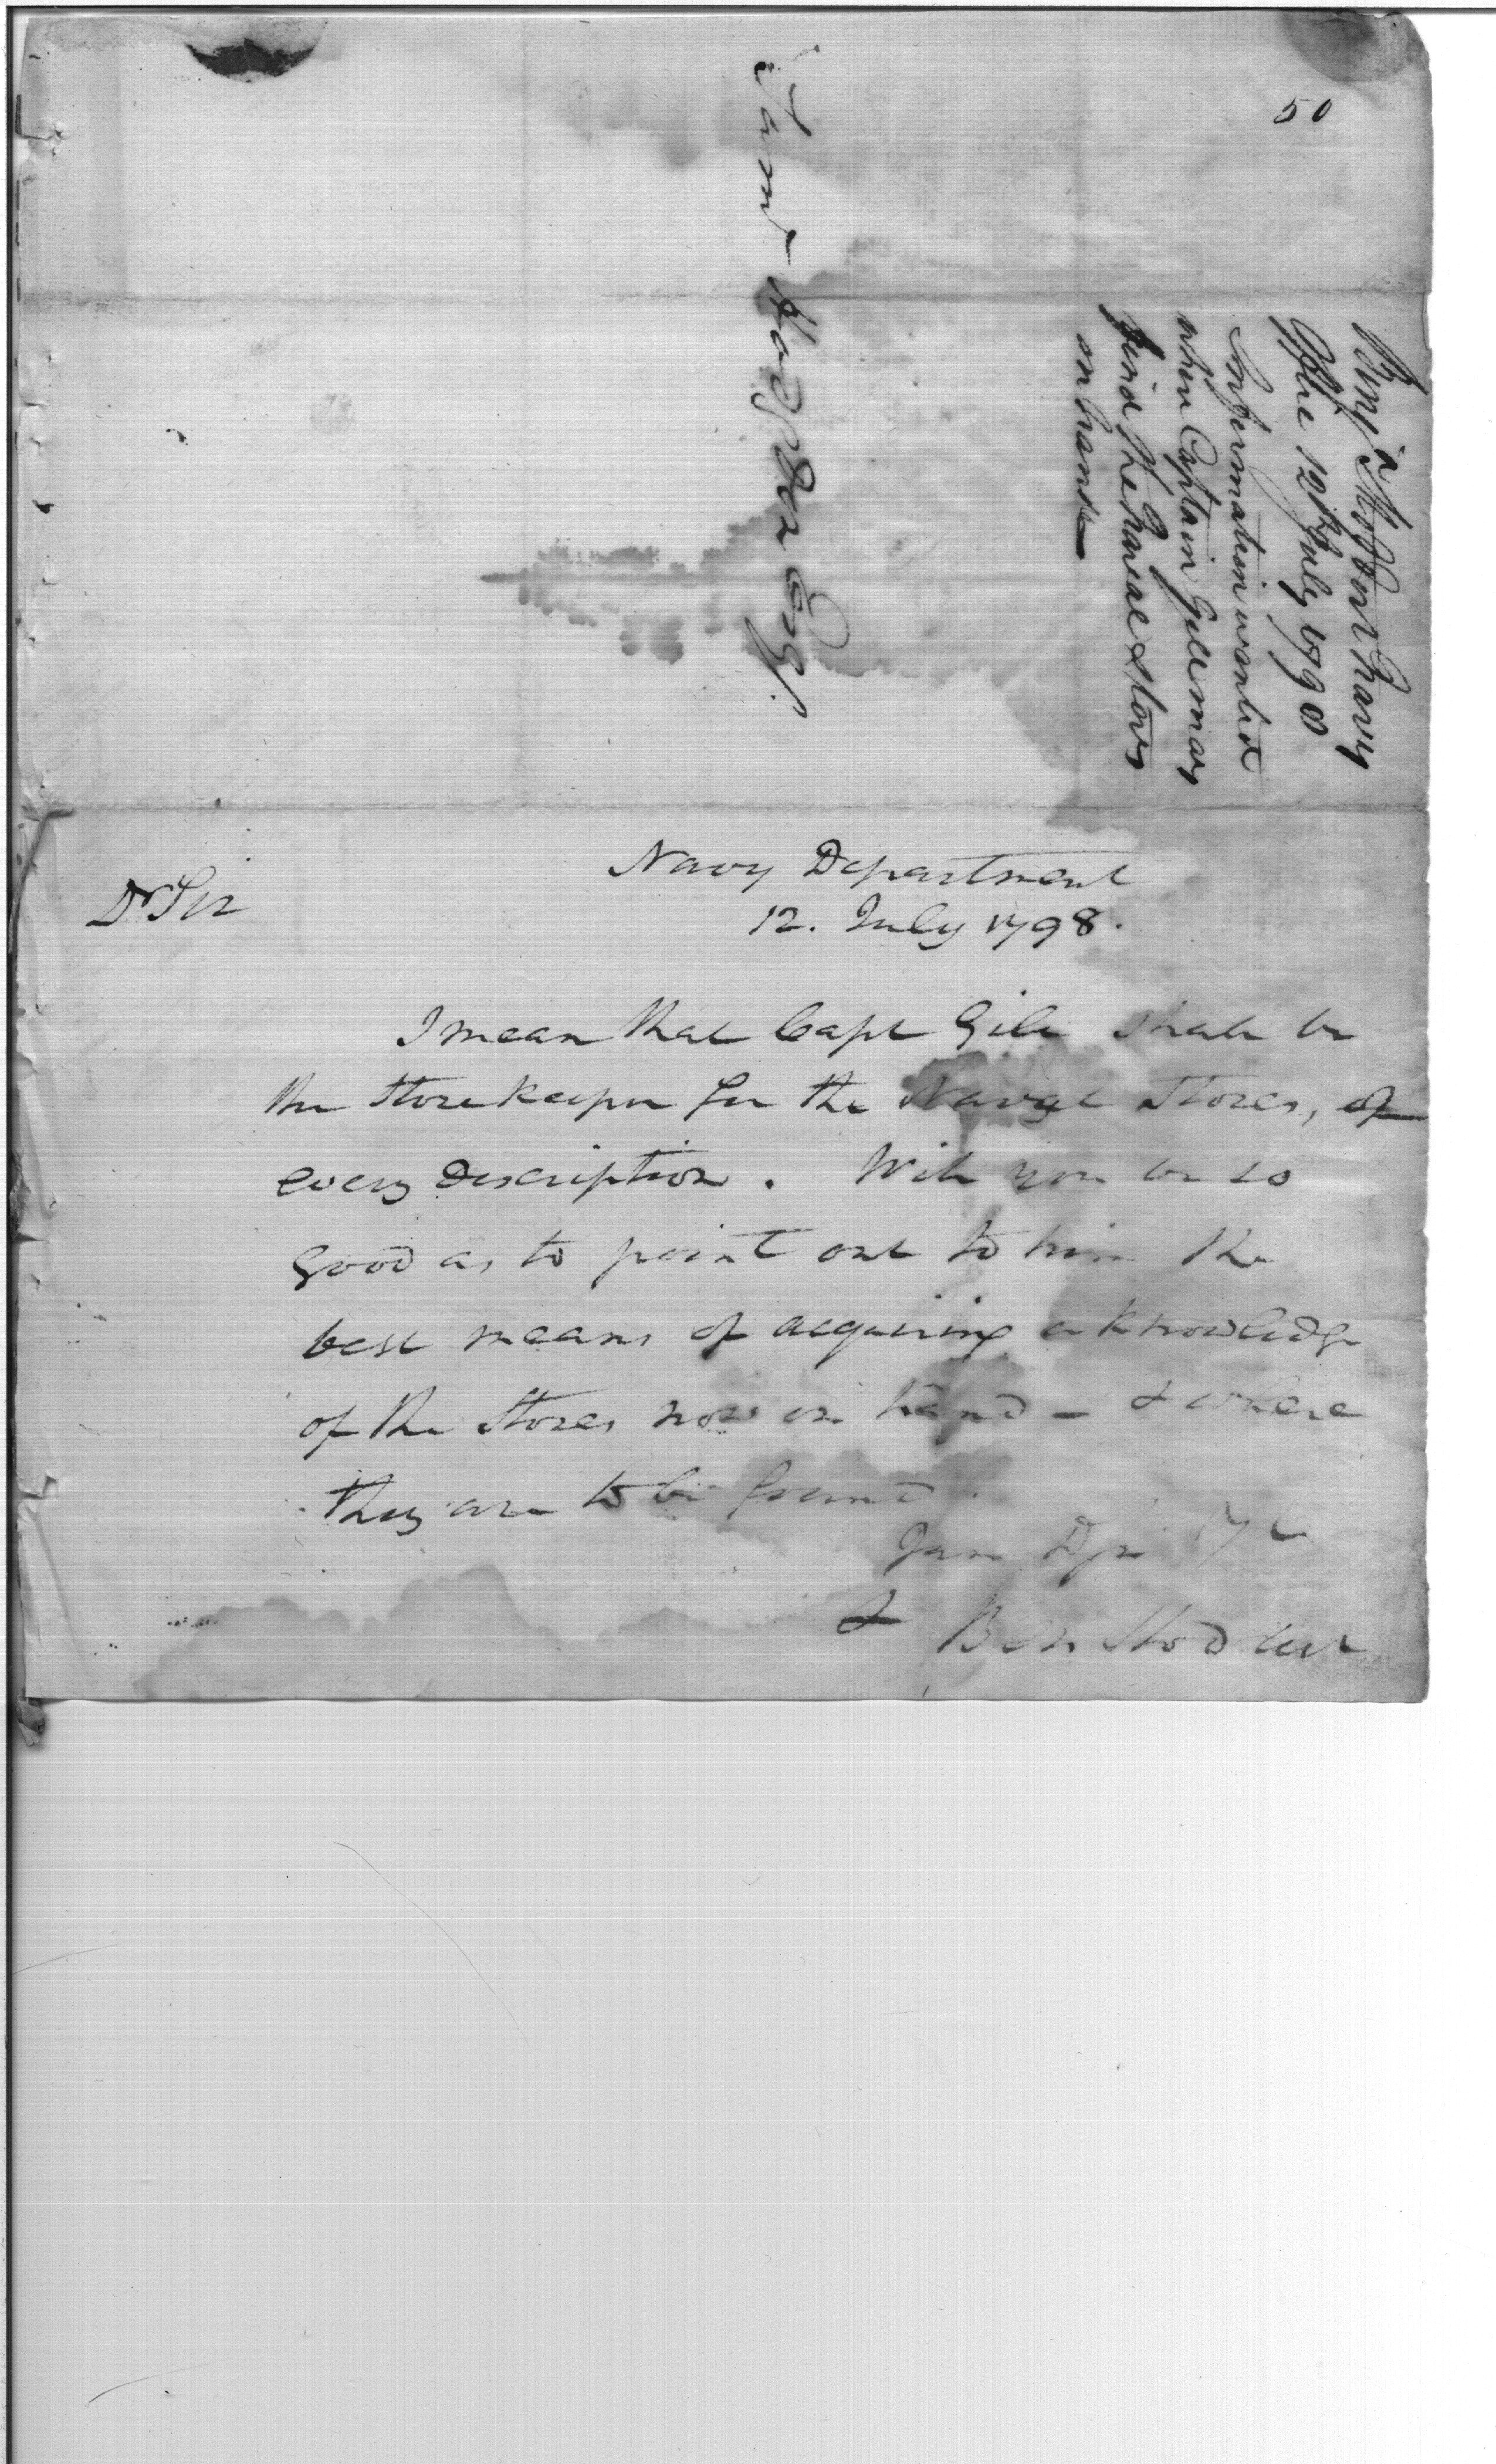 50
Saml Hodgdon Esqr.
Benja Stoddert Navy
Office 12th July 1798
Information wanted
when Captain Gill may
find the Naval Stores
on hand
Navy Department
12. July 1798.
Dr Sir
I mean that Capt Gill shall be
the Storekeeper for the Naval Stores, of
every description. Will you be so
good as to point out to him the
best means of acquiring a knowledge
of the Stores now on hand - & where
they are to be found.
I am Dr Sir
Ben Stoddert